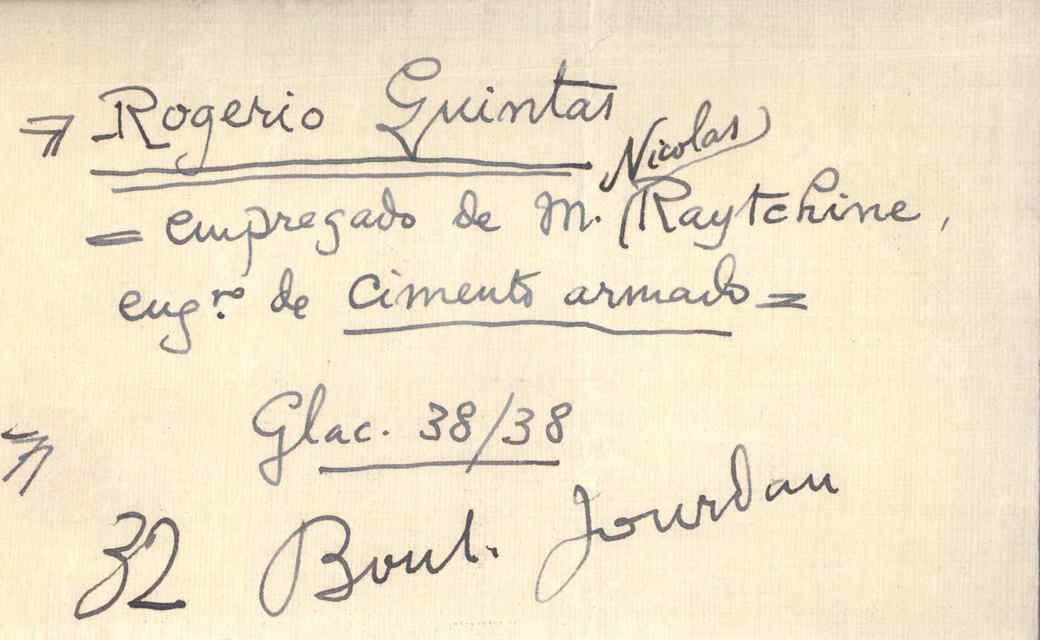 ⇒ Rogerio Quintas
Nicolas)
= empregado de M. (Raytchine,
eng.ro de cimento armado =
Glac. 38/38
⇒
32 Boul. Jourdan